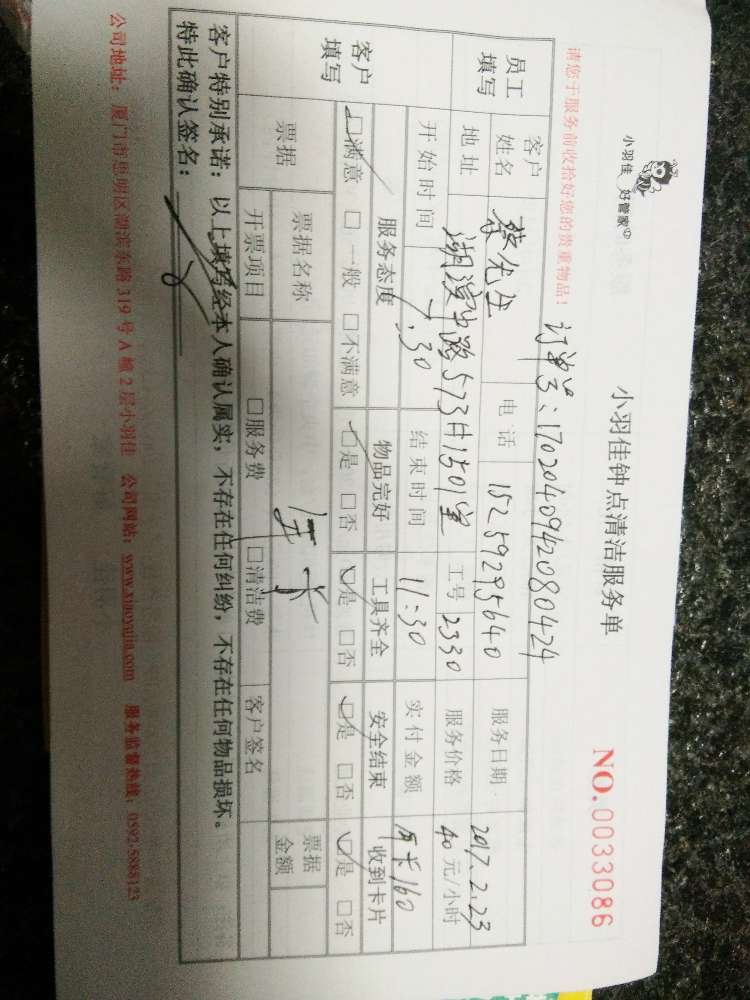 小羽佳 好管家
小羽佳钟点清洁服务单
NO.0033086
请您于服务前收拾好您的贵重物品!
订单号:1702040942080424
员工填写
客户姓名 蔡先生 电话 15259295640 服务日期: 2017.2.23
地址 湖滨中路573号1501室 工号 2330 服务价格 40元/小时
开始时间 7:30 结束时间 11:30 实付金额 年卡160
客户填写
服务态度 物品完好 工具齐全 安全结束 收到卡片
□满意 □一般 □不满意 □是 □否 □是 □否 □是 □否 □是 □否
票据 票据名称 年卡 票据金额
开票项目 □服务费 □清洁费 客户签名
客户特别承诺:以上填写经本人确认属实,不存在任何纠纷,不存在任何物品损坏。
特此确认签名:
公司地址:厦门市思明区湖滨东路319号A幢2层小羽佳 公司网站:www.xiaoyujia.com 服务监督热线:0592-5888123